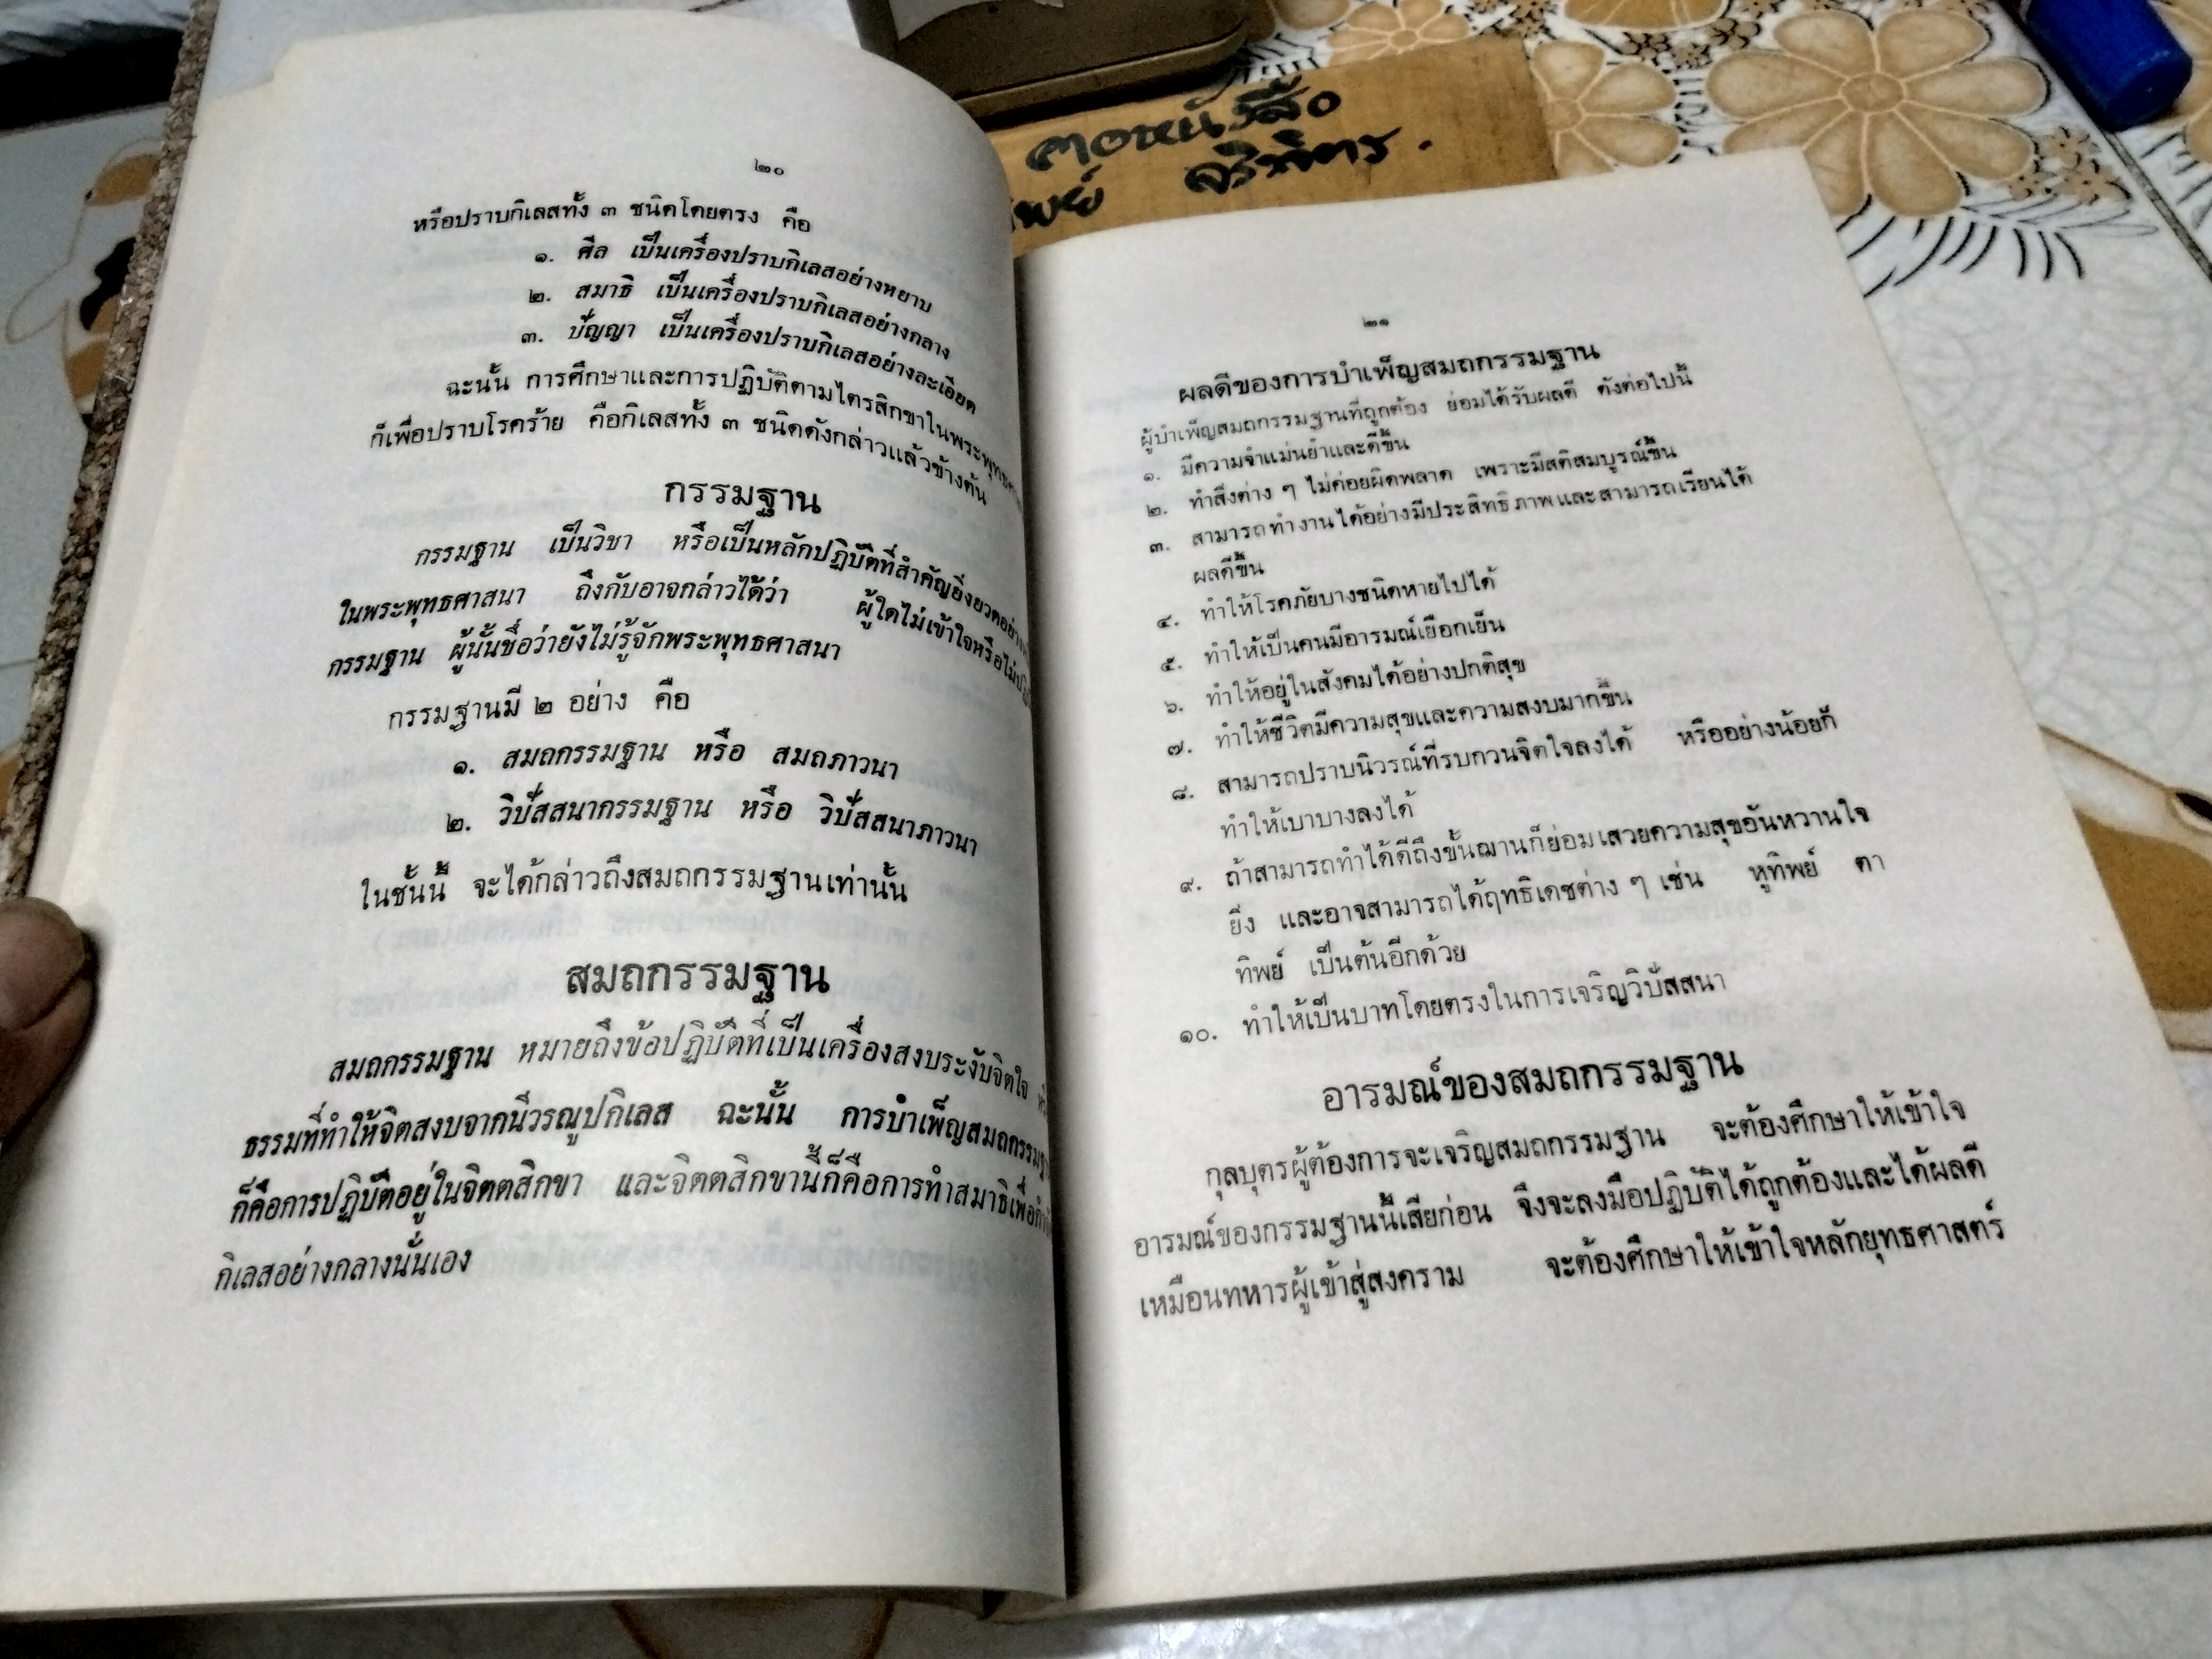 ๒๐
หรือปราบกิเลสทั้ง ๓ ชนิดโดยตรง คือ
๑. ศีล เป็นเครื่องปราบกิเลสอย่างหยาบ
๒. สมาธิ เป็นเครื่องปราบกิเลสอย่างกลาง
๓. ปัญญา เป็นเครื่องปราบกิเลสอย่างละเอียด
ฉะนั้น การศึกษาและการปฏิบัติตามไตรสิกขาในพระพุทธ
ก็เพื่อปราบโรคร้าย คือกิเลสทั้ง ๓ ชนิดดังกล่าวแล้วข้างต้น
กรรมฐาน
กรรมฐาน เป็นวิชา หรือเป็นหลักปฏิบัติที่สำคัญยิ่งยวดอย่าง
ในพระพุทธศาสนา ถึงกับอาจกล่าวได้ว่า ผู้ใดไม่เข้าใจหรือไม่
กรรมฐาน ผู้นั้นชื่อว่ายังไม่รู้จักพระพุทธศาสนา
กรรมฐานมี ๒ อย่าง คือ
๑. สมถกรรมฐาน หรือ สมถภาวนา
๒. วิปัสสนากรรมฐาน หรือ วิปัสสนาภาวนา
ในชั้นนี้ จะได้กล่าวถึงสมถกรรมฐานเท่านั้น
สมถกรรมฐาน
สมถกรรมฐาน หมายถึงข้อปฏิบัติที่เป็นเครื่องสงบระงับจิตใจ
ธรรมที่ทำให้จิตสงบจากนีวรณูปกิเลส ฉะนั้น การบำเพ็ญสมถกรรมฐ
ก็คือการปฏิบัติอยู่ในจิตตสิกขา และจิตตสิกขานี้ก็คือการทำสมาธิเพื่อ
กิเลสอย่างกลางนั่นเอง
๒๑
ผลดีของการบำเพ็ญสมถกรรมฐาน
ผู้บำเพ็ญสมถกรรมฐานที่ถูกต้อง ย่อมได้รับผลดี ดังต่อไปนี้
๑. มีความจำแม่นยำและดีขึ้น
๒. ทำสิ่งต่าง ๆ ไม่ค่อยผิดพลาด เพราะมีสติสมบูรณ์ขึ้น
๓. สามารถทำงานได้อย่างมีประสิทธิภาพและสามารถเรียนได้
ผลดีขึ้น
๔. ทำให้โรคภัยบางชนิดหายไปได้
๕. ทำให้เป็นคนมีอารมณ์เยือกเย็น
๖. ทำให้อยู่ในสังคมได้อย่างปกติสุข
๗. ทำให้ชีวิตมีความสุขและความสงบมากขึ้น
๘. สามารถปราบนิวรณ์ที่รบกวนจิตใจลงได้ หรืออย่างน้อยก็
ทำให้เบาบางลงได้
๙. ถ้าสามารถทำได้ดีถึงขั้นฌานก็ย่อมเสวยความสุขอันหวานใจ
ยิ่ง และอาจสามารถได้ฤทธิเดชต่าง ๆ เช่น หูทิพย์ ตา
ทิพย์ เป็นต้นอีกด้วย
๑๐. ทำให้เป็นบาทโดยตรงในการเจริญวิปัสสนา
อารมณ์ของสมถกรรมฐาน
กุลบุตรผู้ต้องการจะเจริญสมถกรรมฐาน จะต้องศึกษาให้เข้าใจ
อารมณ์ของกรรมฐานนี้เสียก่อน จึงจะลงมือปฏิบัติได้ถูกต้องและได้ผลดี
เหมือนทหารผู้เข้าสู่สงคราม จะต้องศึกษาให้เข้าใจหลักยุทธศาสตร์